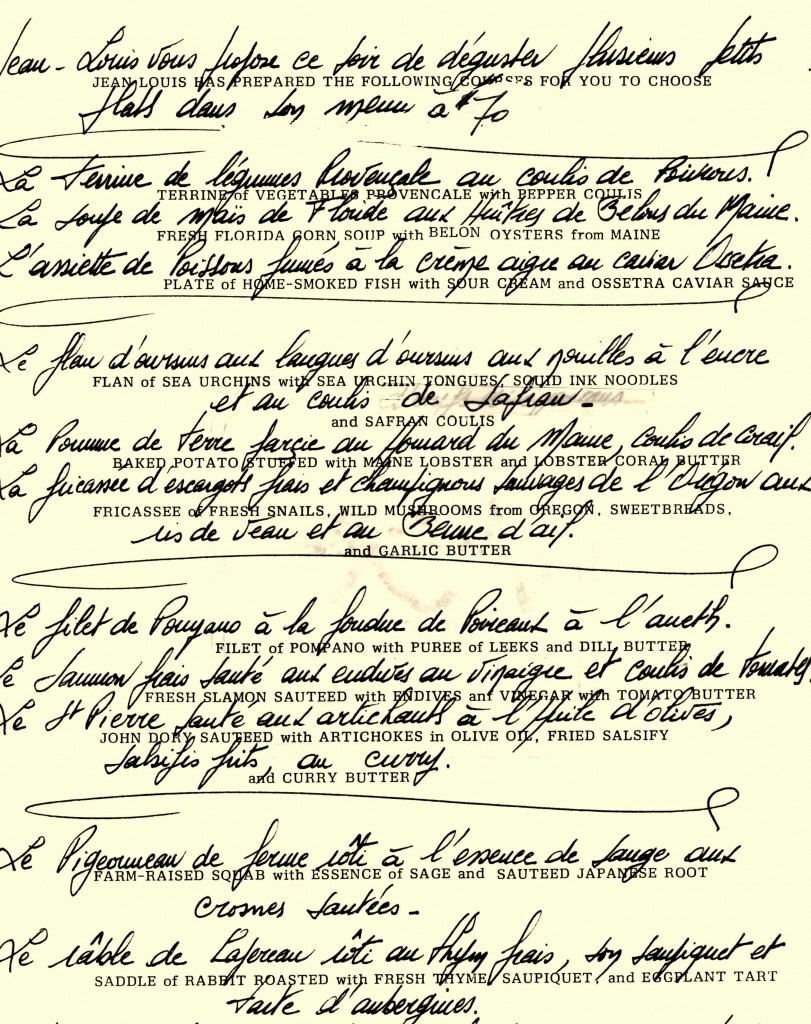 Jean-Louis vous propose ce soir de déguster plusieurs petits
JEAN-LOUIS HAS PREPARED THE FOLLOWING COURSES FOR YOU TO CHOOSE
plats dans son menu à $70
La Terrine de légumes Provençale au coulis de Poivrons.
TERRINE of VEGETABLES PROVENCALE with PEPPER COULIS
La soupe de maïs de Floride aux Huîtres de Belons du Maine.
FRESH FLORIDA CORN SOUP with BELON OYSTERS from MAINE
L'assiette de Poissons fumés à la crème aigre au caviar Ossetra.
PLATE of HOME-SMOKED FISH with SOUR CREAM and OSSETRA CAVIAR SAUCE
Le flan d'oursins aux langues d'oursins aux nouilles à l'encre
FLAN of SEA URCHINS with SEA URCHIN TONGUES, SQUID INK NOODLES
et au coulis de Safran -
and SAFRAN COULIS
La Pomme de Terre farcie au Homard du Maine, coulis de corail.
BAKED POTATO STUFFED with MAINE LOBSTER and LOBSTER CORAL BUTTER
La fricassée d'escargots frais et champignons sauvages de l'Orégon aux
FRICASSEE of FRESH SNAILS, WILD MUSHROOMS from OREGON, SWEETBREADS,
ris de veau et au Beurre d'ail.
and GARLIC BUTTER
Le filet de Pompano à la fondue de Poireaux à l'aneth.
FILET of POMPANO with PUREE of LEEKS and DILL BUTTER
Le Saumon frais sauté aux endives au vinaigre et coulis de tomates.
FRESH SLAMON SAUTEED with ENDIVES and VINEGAR with TOMATO BUTTER
Le St Pierre sauté aux artichauts à l'huile d'olives,
JOHN DORY SAUTEED with ARTICHOKES in OLIVE OIL, FRIED SALSIFY
salsifis frits, au curry.
and CURRY BUTTER
Le Pigeonneau de ferme rôti à l'essence de sauge aux
FARM-RAISED SQUAB with ESSENCE of SAGE and SAUTEED JAPANESE ROOT
crosnes sautées -
Le râble de Lapereau rôti au thym frais, son saupiquet et
SADDLE of RABBIT ROASTED with FRESH THYME, SAUPIQUET, and EGGPLANT TART
tarte d'aubergines.